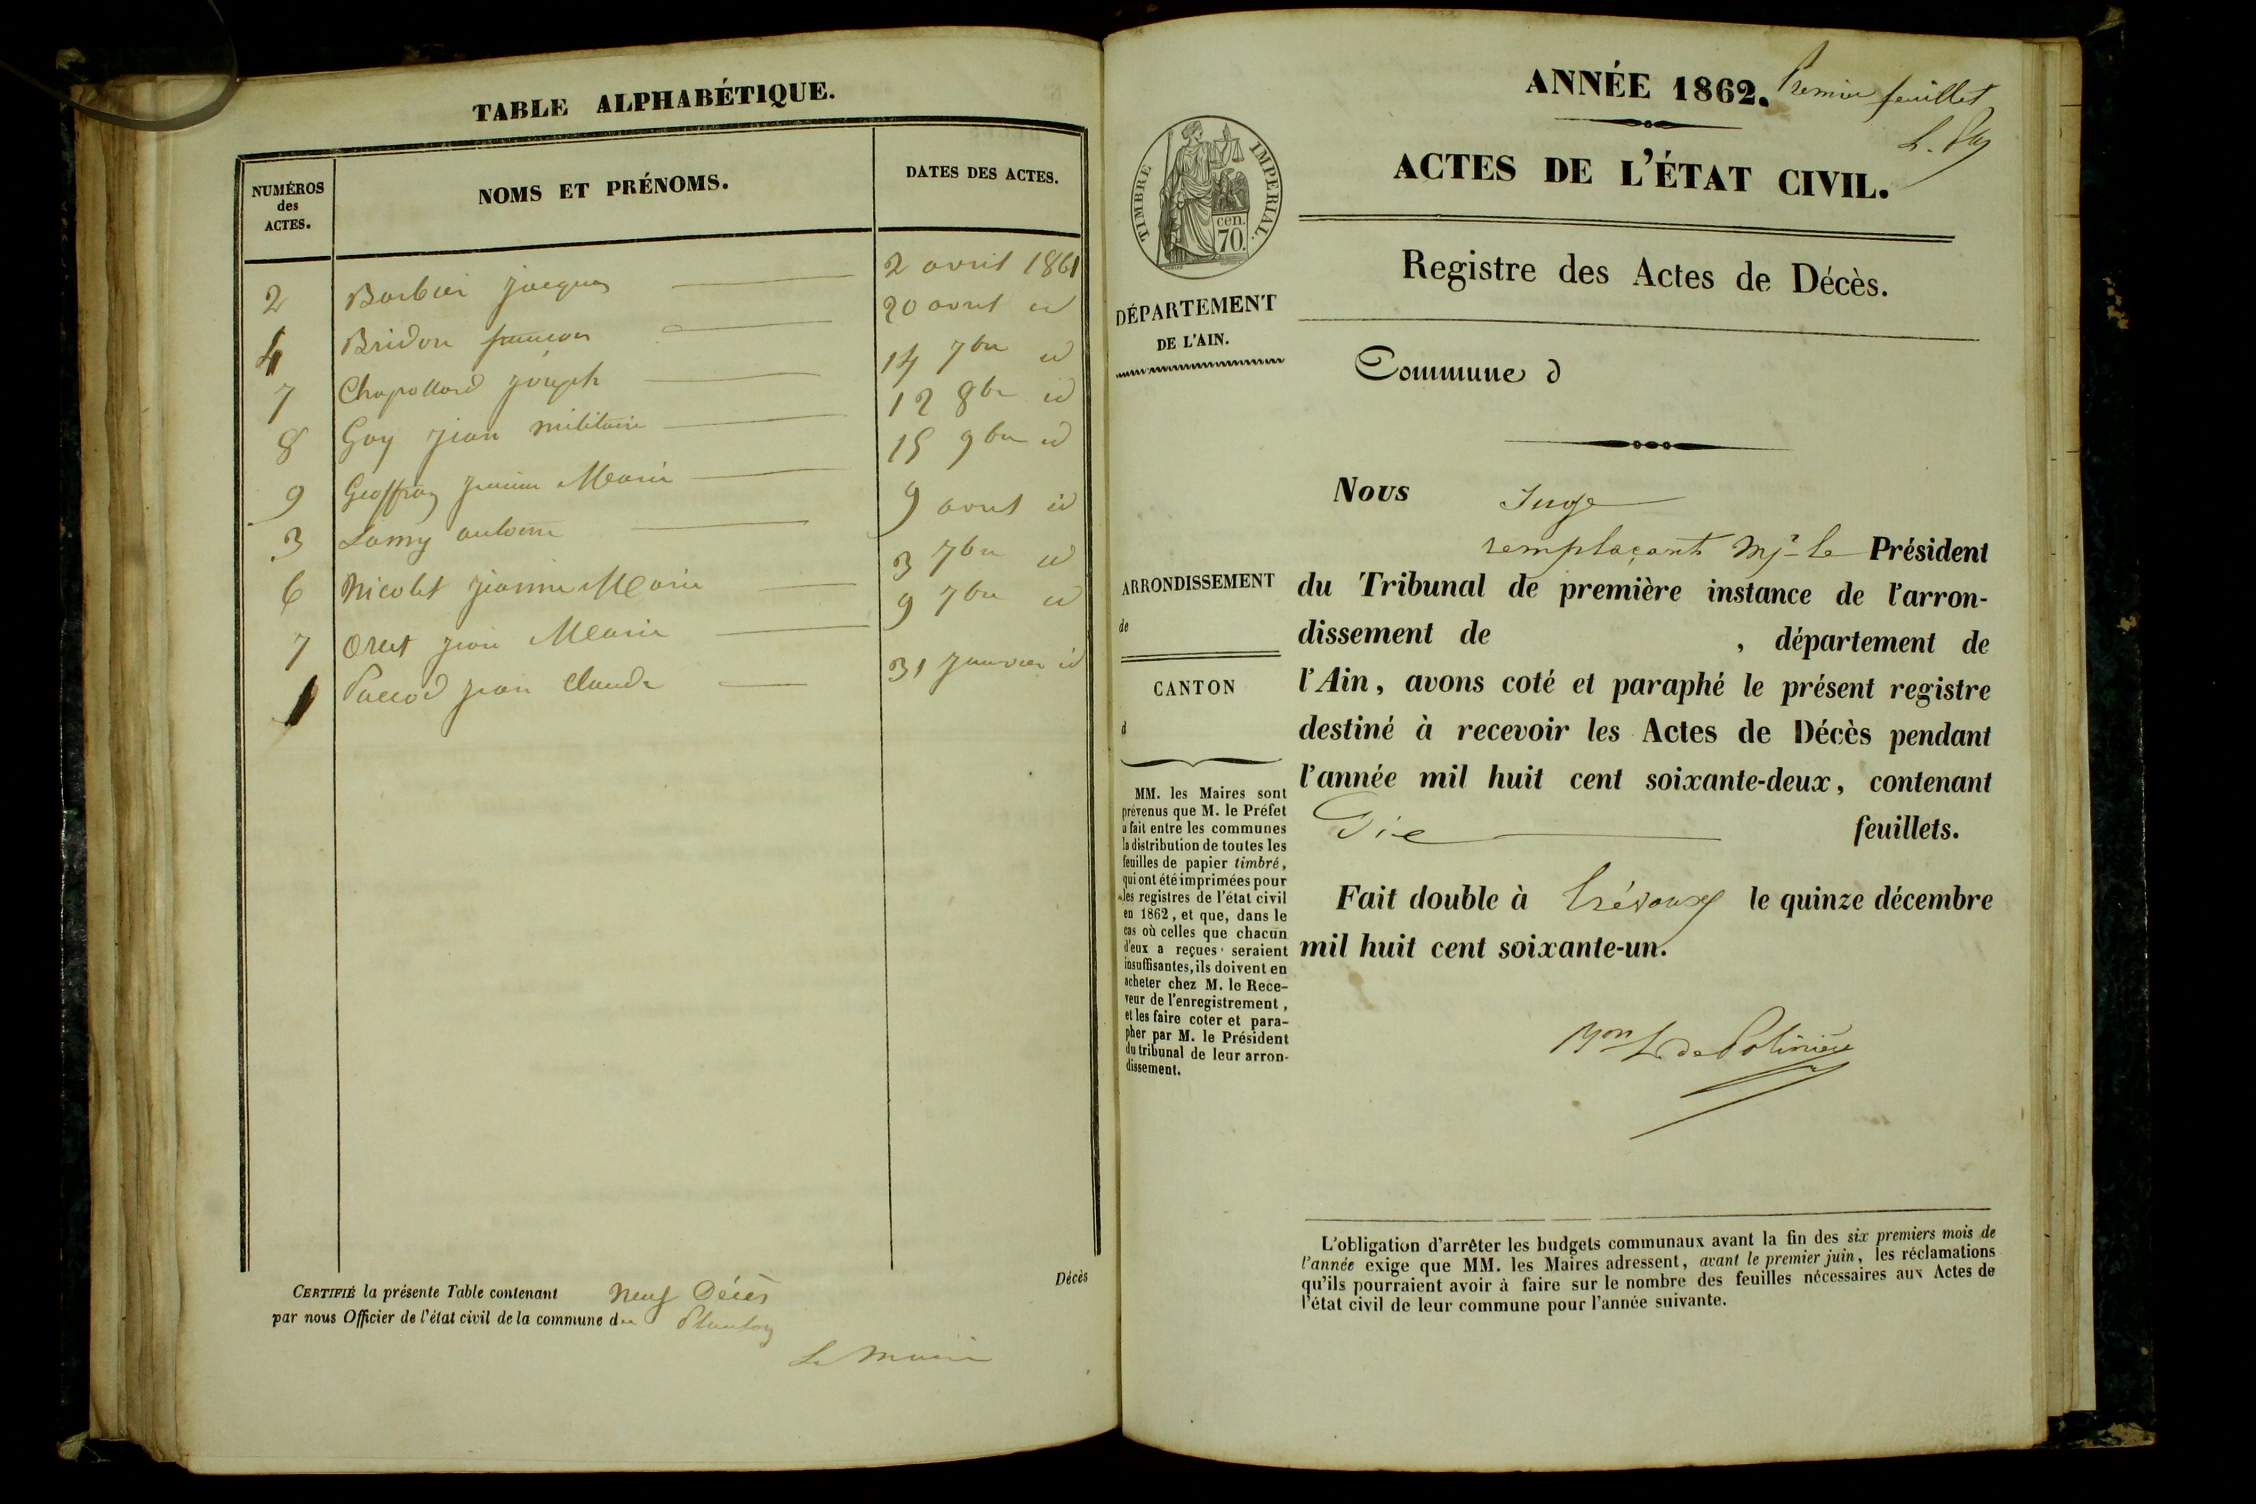 TABLE ALPHABÉTIQUE.
NUMÉROS
des
ACTES.
NOMS ET PRÉNOMS.
DATES DES ACTES.
2 Barbier jacques 2 avril 1861
4 Bridon françois 20 avril id
7 Chapolard joseph 14 7bre id
8 Gay jean militaire 12 8bre id
9 Geoffray Marie 15 9bre id
3 Lamy antoine 9 avril id
6 Nicolet jeanne Marie 3 7bre id
7 jean Marie 9 7bre id
1 jean Claude 31 janvier id
Décès
CERTIFIÉ la présente Table contenant neuf Décès
par nous Officier de l'état civil de la commune du Plantay
Le Maire
ANNÉE 1862.
Premier feuillet
ACTES DE L'ÉTAT CIVIL.
TIMBRE IMPERIAL.
cen.
70.
Registre des Actes de Décès.
DÉPARTEMENT
DE L'AIN.
Commune d
Nous Juge
remplaçant Mr le Président
du Tribunal de première instance de l'arron-
dissement de , département de
l'Ain, avons coté et paraphé le présent registre
destiné à recevoir les Actes de Décès pendant
l'année mil huit cent soixante-deux, contenant
feuillets.
Fait double à Trévoux le quinze décembre
mil huit cent soixante-un.
de Polinière
ARRONDISSEMENT
de
CANTON
d
MM. les Maires sont
prévenus que M. le Préfet
a fait entre les communes
la distribution de toutes les
feuilles de papier timbré,
qui ont été imprimées pour
les registres de l'état civil
en 1862, et que, dans le
cas où celles que chacun
d'eux a reçues seraient
insuffisantes, ils doivent en
acheter chez M. le Rece-
veur de l'enregistrement,
et les faire coter et para-
pher par M. le Président
du tribunal de leur arron-
dissement.
L'obligation d'arrêter les budgets communaux avant la fin des six premiers mois de
l'année exige que MM. les Maires adressent, avant le premier juin, les réclamations
qu'ils pourraient avoir à faire sur le nombre des feuilles nécessaires aux Actes de
l'état civil de leur commune pour l'année suivante.